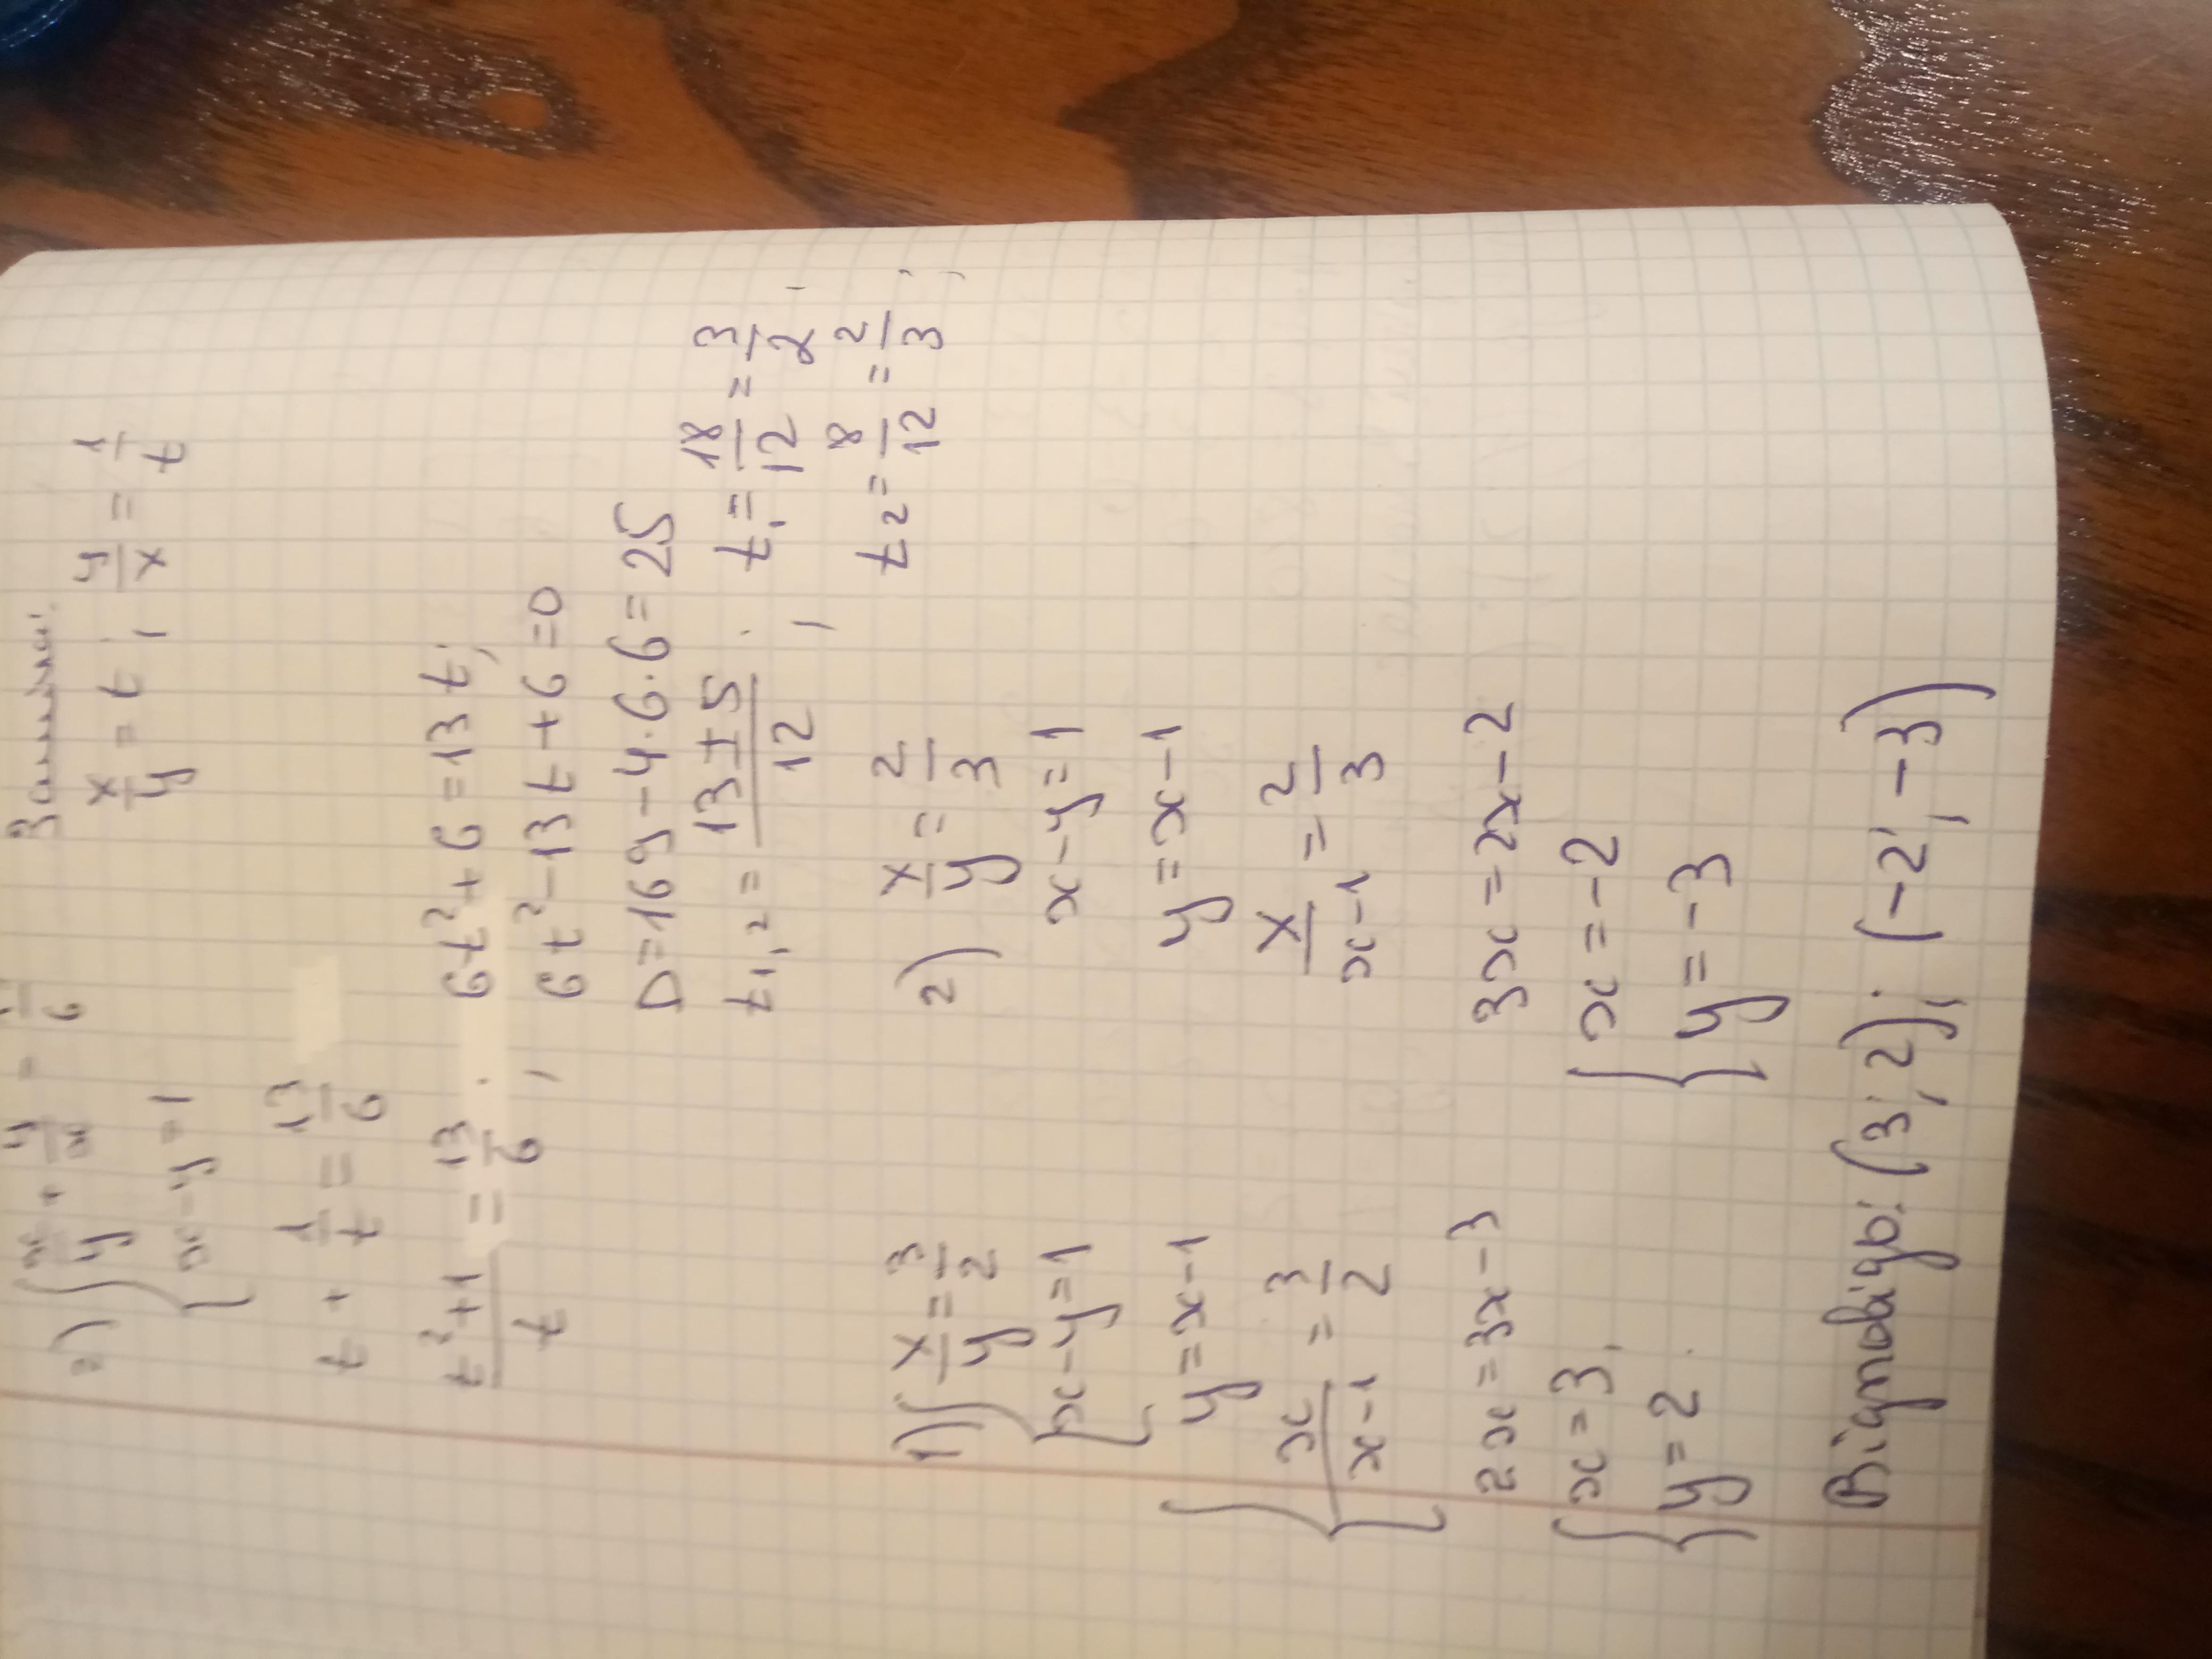 2) { x/y + y/x = 13/6
x - y = 1
Заміна:
x/y = t ; y/x = 1/t
t + 1/t = 13/6
(t² + 1)/t = 13/6 ;
6t² + 6 = 13t ;
6t² - 13t + 6 = 0
D = 169 - 4·6·6 = 25
t₁,₂ = (13 ± 5)/12 ;
t₁ = 18/12 = 3/2 ;
t₂ = 8/12 = 2/3 ;
1) { x/y = 3/2
x - y = 1
{ y = x - 1
x/(x - 1) = 3/2
2x = 3x - 3
{ x = 3,
y = 2.
2) x/y = 2/3
x - y = 1
y = x - 1
x/(x - 1) = 2/3
3x = 2x - 2
{ x = -2
y = -3
Відповідь: (3; 2); (-2; -3)